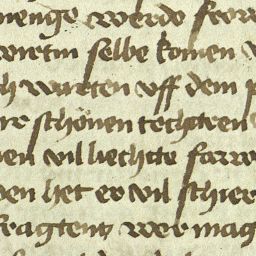 menge werde
wirtin selbe komen
warten uff dem
schönen techteren
vil liechte farw
het er vil schier
fragtent wer mag